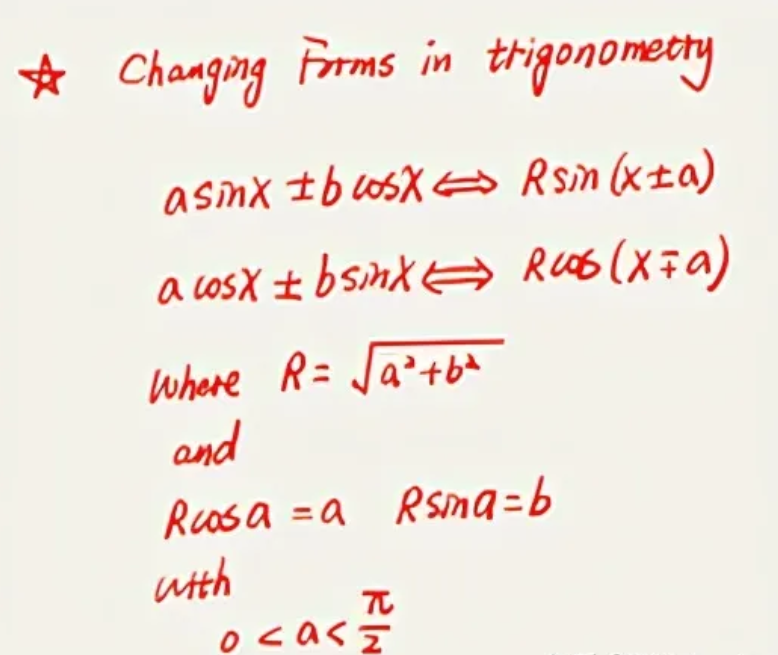 ☆ Changing Forms in trigonometry
a sinx ± b cosx ⟺ R sin (x ± a)
a cosx ± b sinx ⟺ R cos (x ∓ a)
where R = √(a²+b²)
and
R cos a = a R sin a = b
with
0 < a < π/2